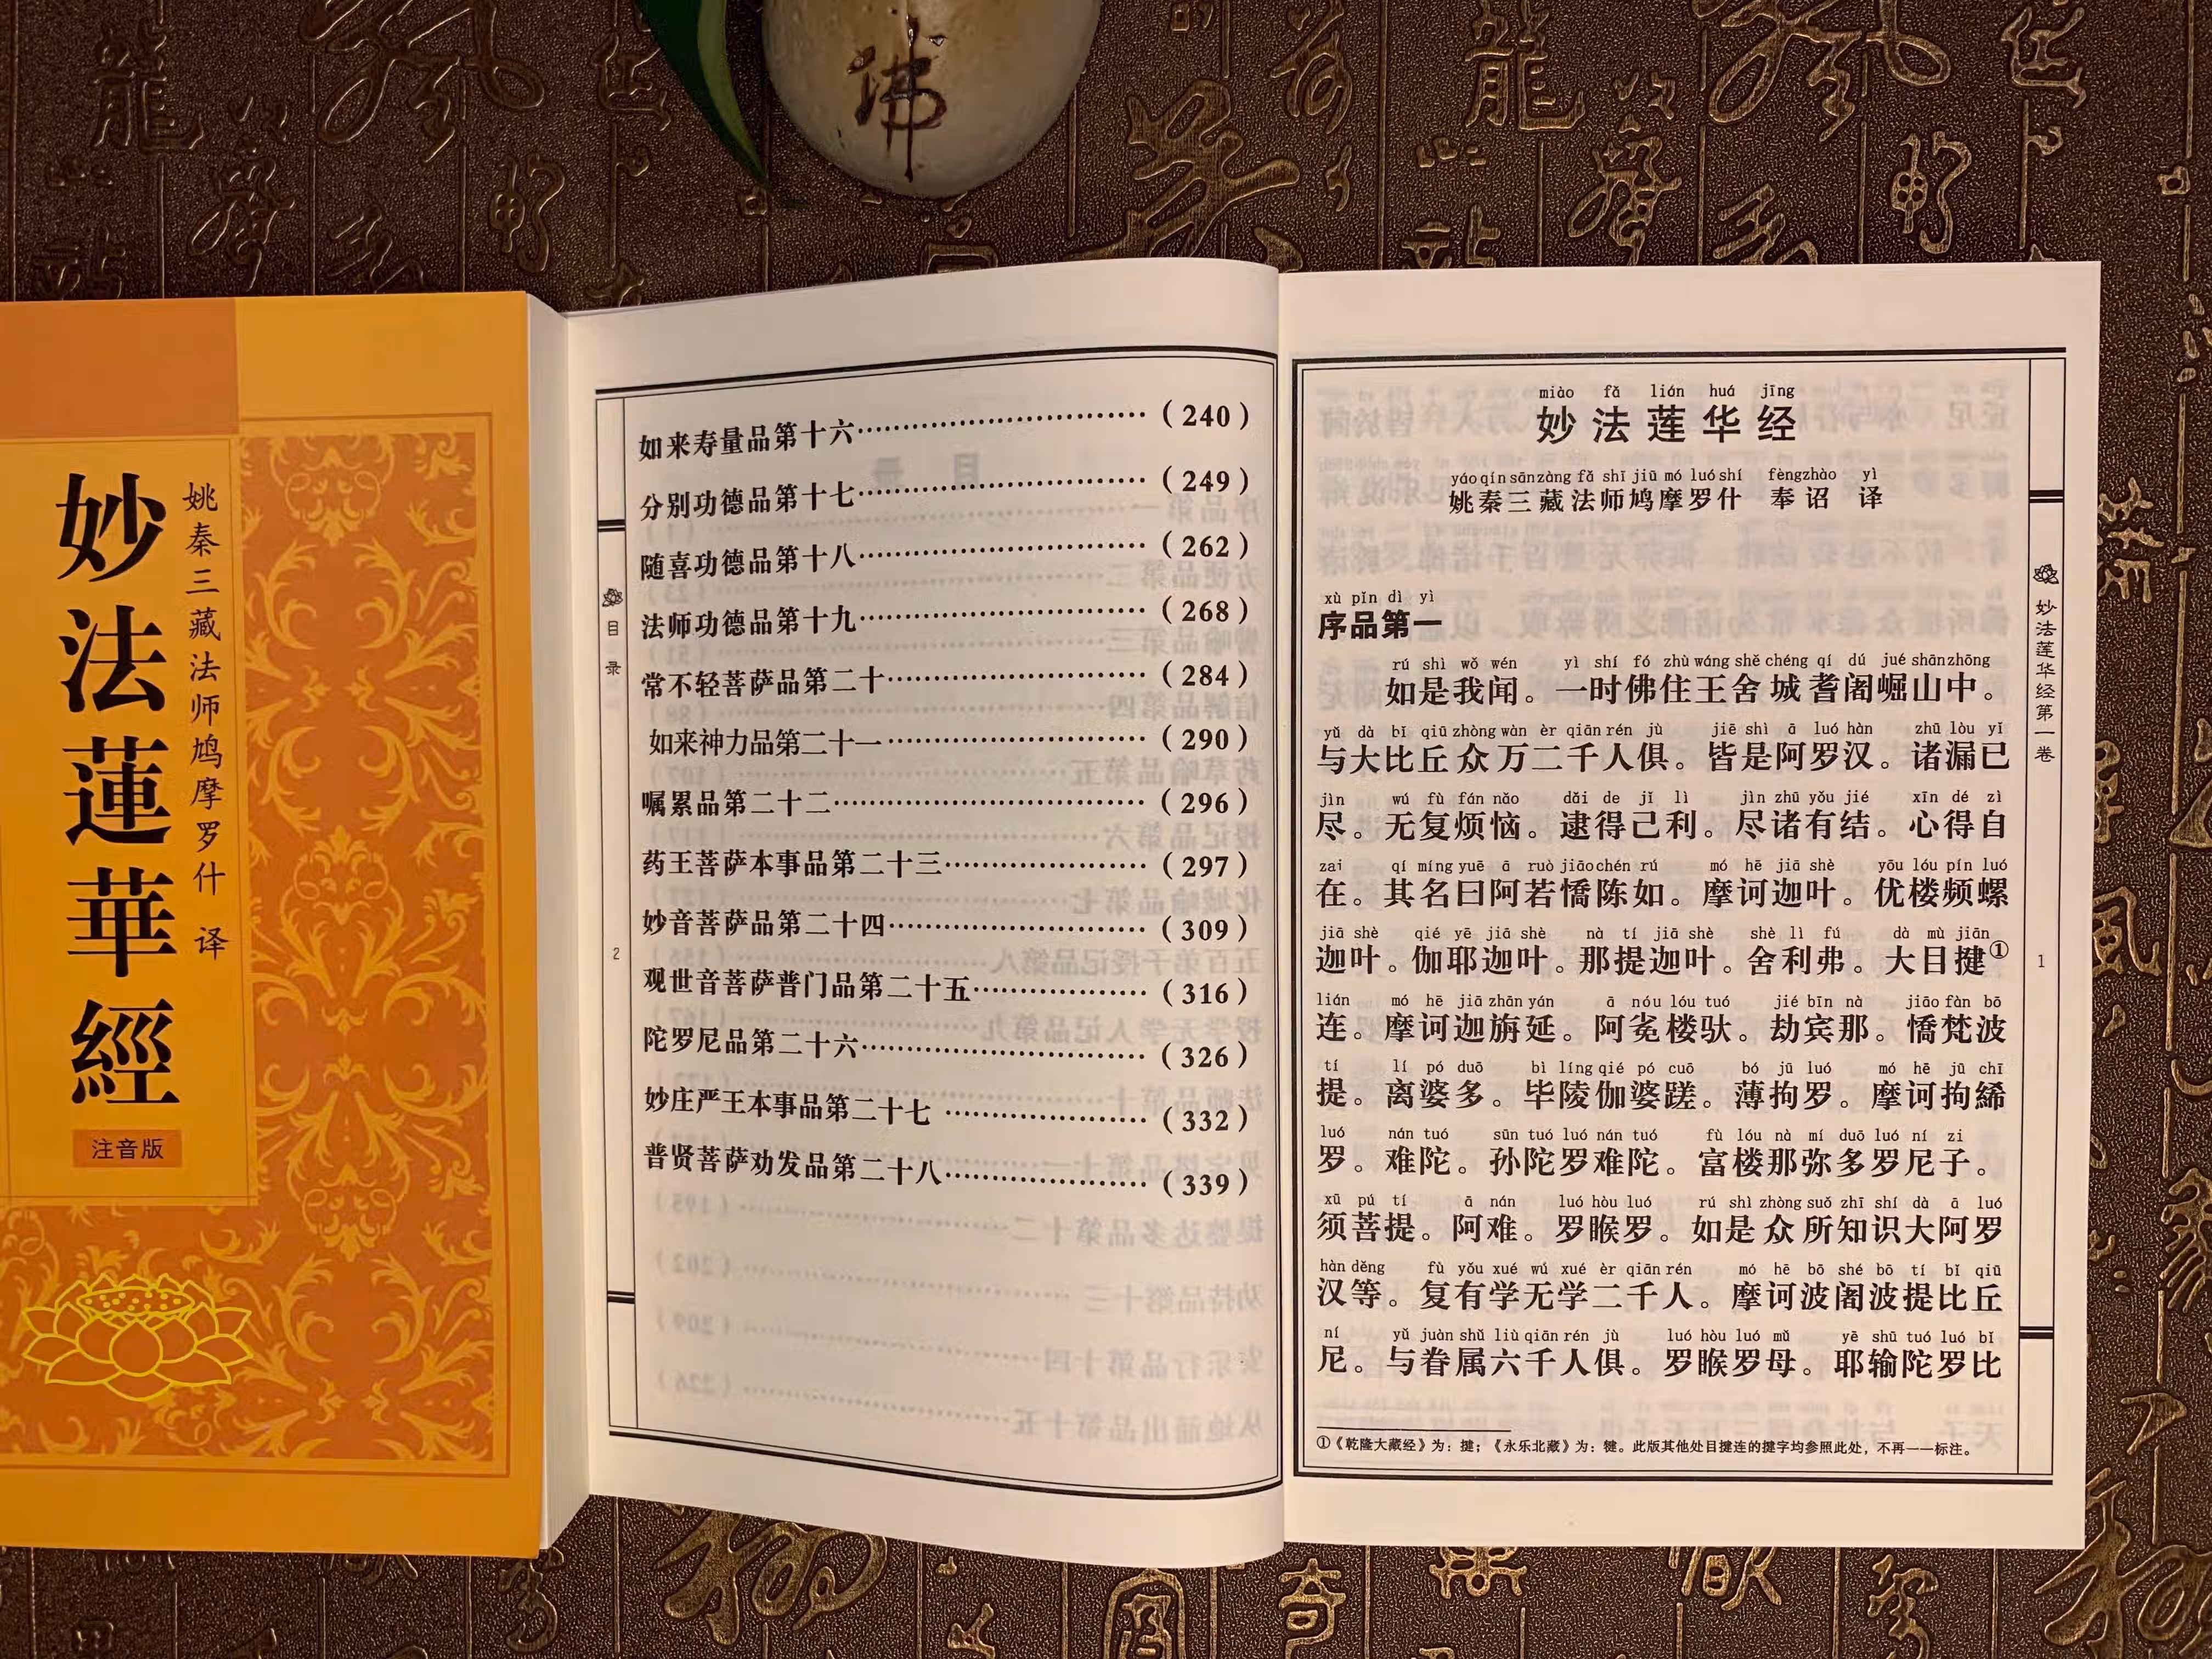 佛
妙法蓮華經
姚秦三藏法师鸠摩罗什 译
注音版
目录
2
如来寿量品第十六……………………（240）
分别功德品第十七……………………（249）
随喜功德品第十八……………………（262）
法师功德品第十九……………………（268）
常不轻菩萨品第二十……………………（284）
如来神力品第二十一……………………（290）
嘱累品第二十二……………………（296）
药王菩萨本事品第二十三……………………（297）
妙音菩萨品第二十四……………………（309）
观世音菩萨普门品第二十五……………………（316）
陀罗尼品第二十六……………………（326）
妙庄严王本事品第二十七……………………（332）
普贤菩萨劝发品第二十八……………………（339）
miào fǎ lián huá jīng
妙法莲华经
yáo qín sān zàng fǎ shī jiū mó luó shí fèng zhào yì
姚秦三藏法师鸠摩罗什 奉诏 译
xù pǐn dì yì
序品第一
rú shì wǒ wén yì shí fó zhù wáng shě chéng qí dú jué shān zhōng
如是我闻。一时佛住王舍城耆阇崛山中。
yǔ dà bǐ qiū zhòng wàn èr qiān rén jù jiē shì ā luó hàn zhū lòu yǐ
与大比丘众万二千人俱。皆是阿罗汉。诸漏已
jìn wú fù fán nǎo dǎi de jǐ lì jìn zhū yǒu jié xīn dé zì
尽。无复烦恼。逮得己利。尽诸有结。心得自
zai qí míng yuē ā ruò jiāo chén rú mó hē jiā shè yōu lóu pín luó
在。其名曰阿若憍陈如。摩诃迦叶。优楼频螺
jiā shè qié yē jiā shè nà tí jiā shè shè lì fú dà mù jiān
迦叶。伽耶迦叶。那提迦叶。舍利弗。大目揵①
lián mó hē jiā zhān yán ā nóu lóu tuó jié bīn nà jiāo fàn bō
连。摩诃迦旃延。阿㝹楼驮。劫宾那。憍梵波
tí lí pó duō bì líng qié pó cuō bó jū luó mó hē jū chī
提。离婆多。毕陵伽婆蹉。薄拘罗。摩诃拘絺
luó nán tuó sūn tuó luó nán tuó fù lóu nà mí duō luó ní zi
罗。难陀。孙陀罗难陀。富楼那弥多罗尼子。
xū pú tí ā nán luó hòu luó rú shì zhòng suǒ zhī shí dà ā luó
须菩提。阿难。罗睺罗。如是众所知识大阿罗
hàn děng fù yǒu xué wú xué èr qiān rén mó hē bō shé bō tí bǐ qiū
汉等。复有学无学二千人。摩诃波阇波提比丘
ní yǔ juàn shǔ liù qiān rén jù luó hòu luó mǔ yē shū tuó luó bǐ
尼。与眷属六千人俱。罗睺罗母。耶输陀罗比
①《乾隆大藏经》为：揵；《永乐北藏》为：犍。此版其他处目揵连的揵字均参照此处，不再一一标注。
妙法莲华经第一卷
1